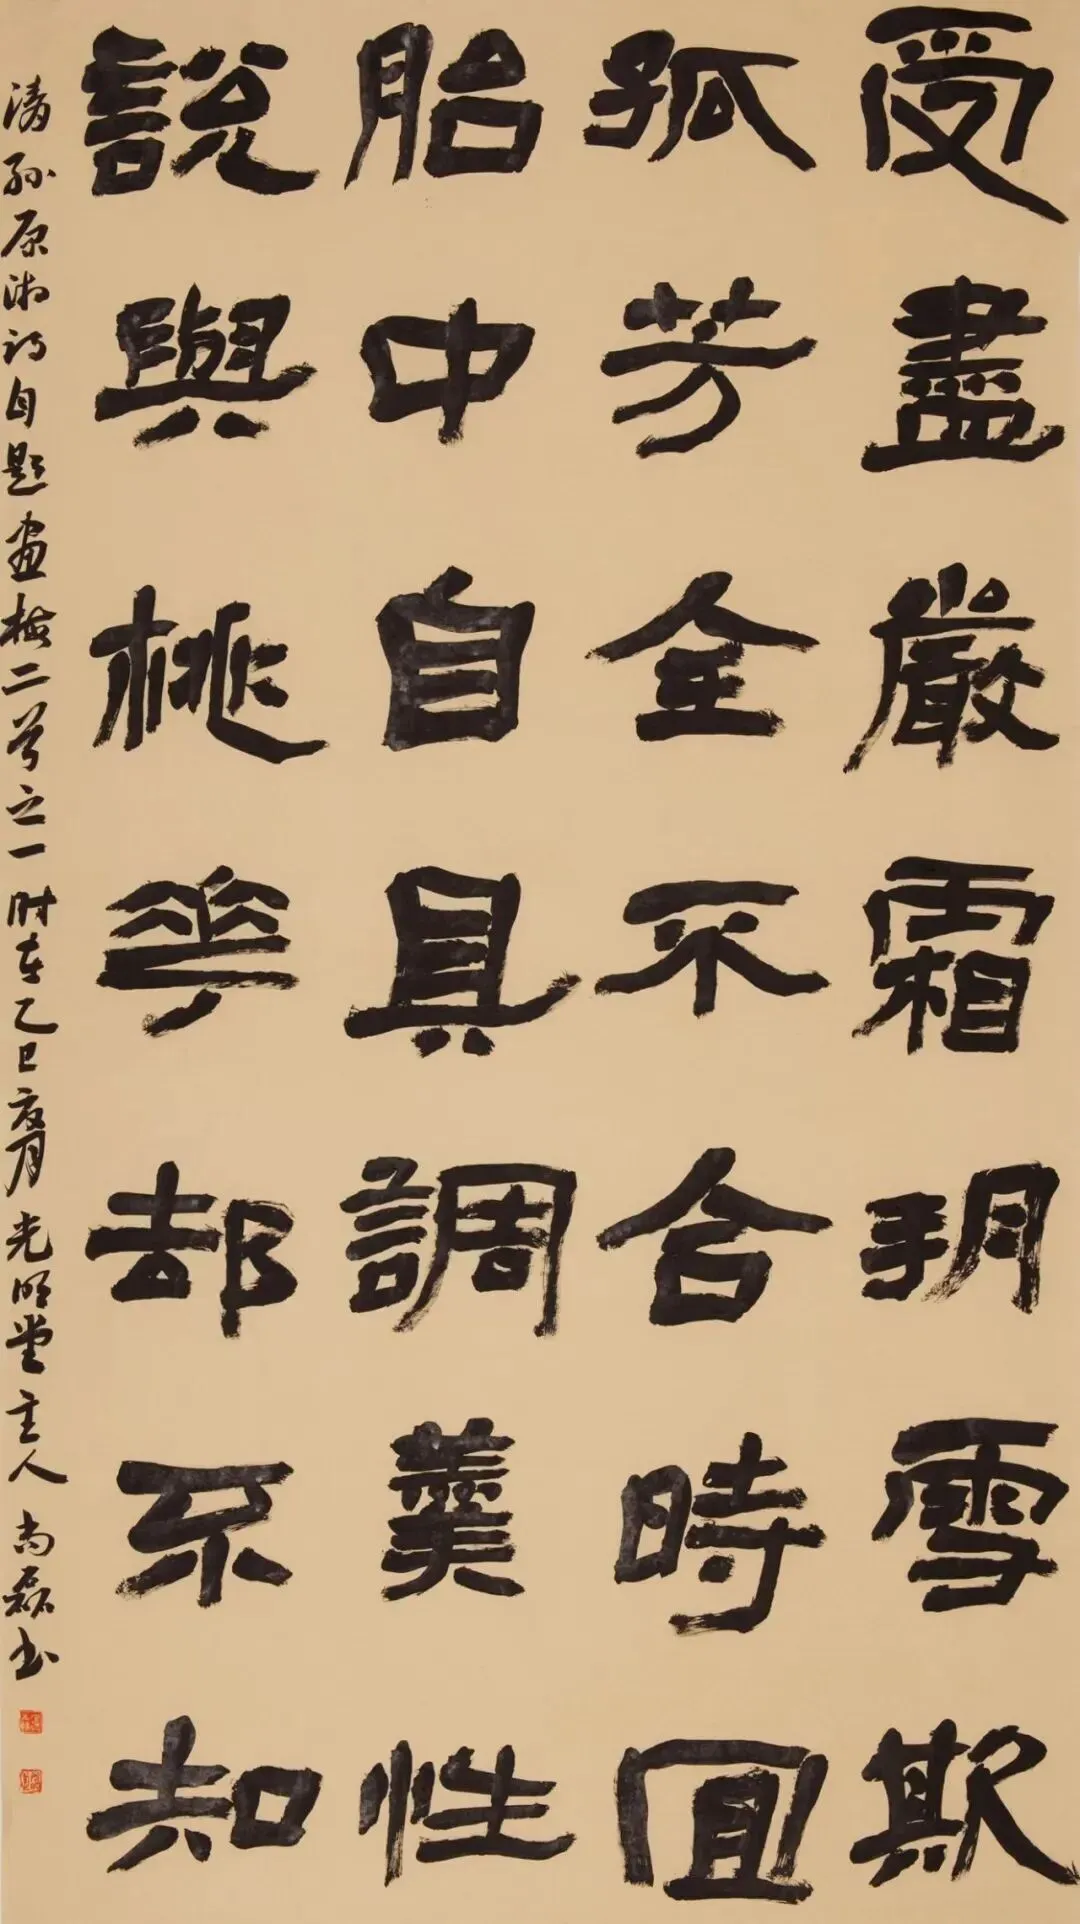 受盡嚴霜朔雪欺
孤芳全不合時宜
胎中自具調羹性
說與桃花却不知
清孙原湘诗自题画梅二首之一时在乙巳夏月光明堂主人尚磊书